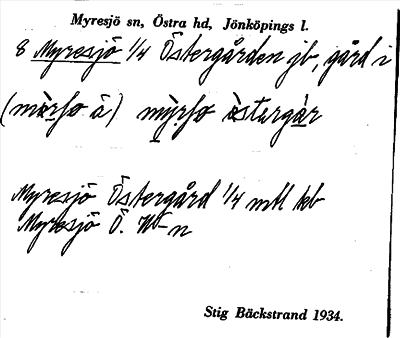 Myresjö sn, Östra hd, Jönköpings l.
8 Myresjö 1/4 Östergården jb, gård i
(mỳrsø å) mỳrsø östergàr
Myresjö Östergård 1/4 mtl kb
Myresjö Ö.
Stig Bäckstrand 1934.